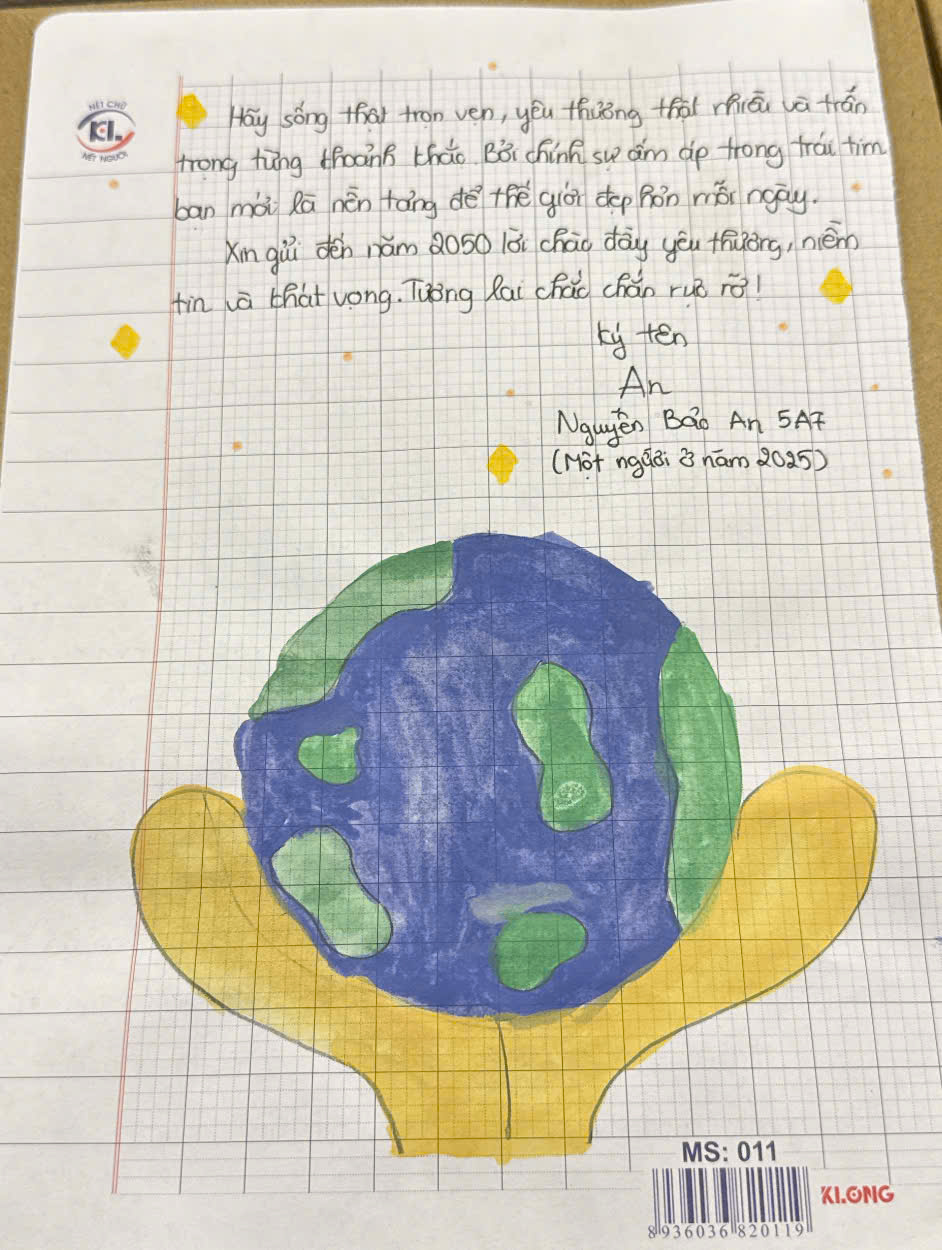 NÉT CHỮ
KL
NẾT NGƯỜI
Hãy sống thật trọn vẹn, yêu thương thật nhiều và trân
trọng từng khoảnh khắc. Bởi chính sự ấm áp trong trái tim
bạn mới là nền tảng để thế giới đẹp hơn mỗi ngày.
Xin gửi đến năm 2050 lời chào đầy yêu thương, niềm
tin và khát vọng. Tương lai chắc chắn rực rỡ!
Ký tên
An
Nguyễn Bảo An 5A7
(Một người ở năm 2025)
MS: 011
KLONG
8 936036 820119